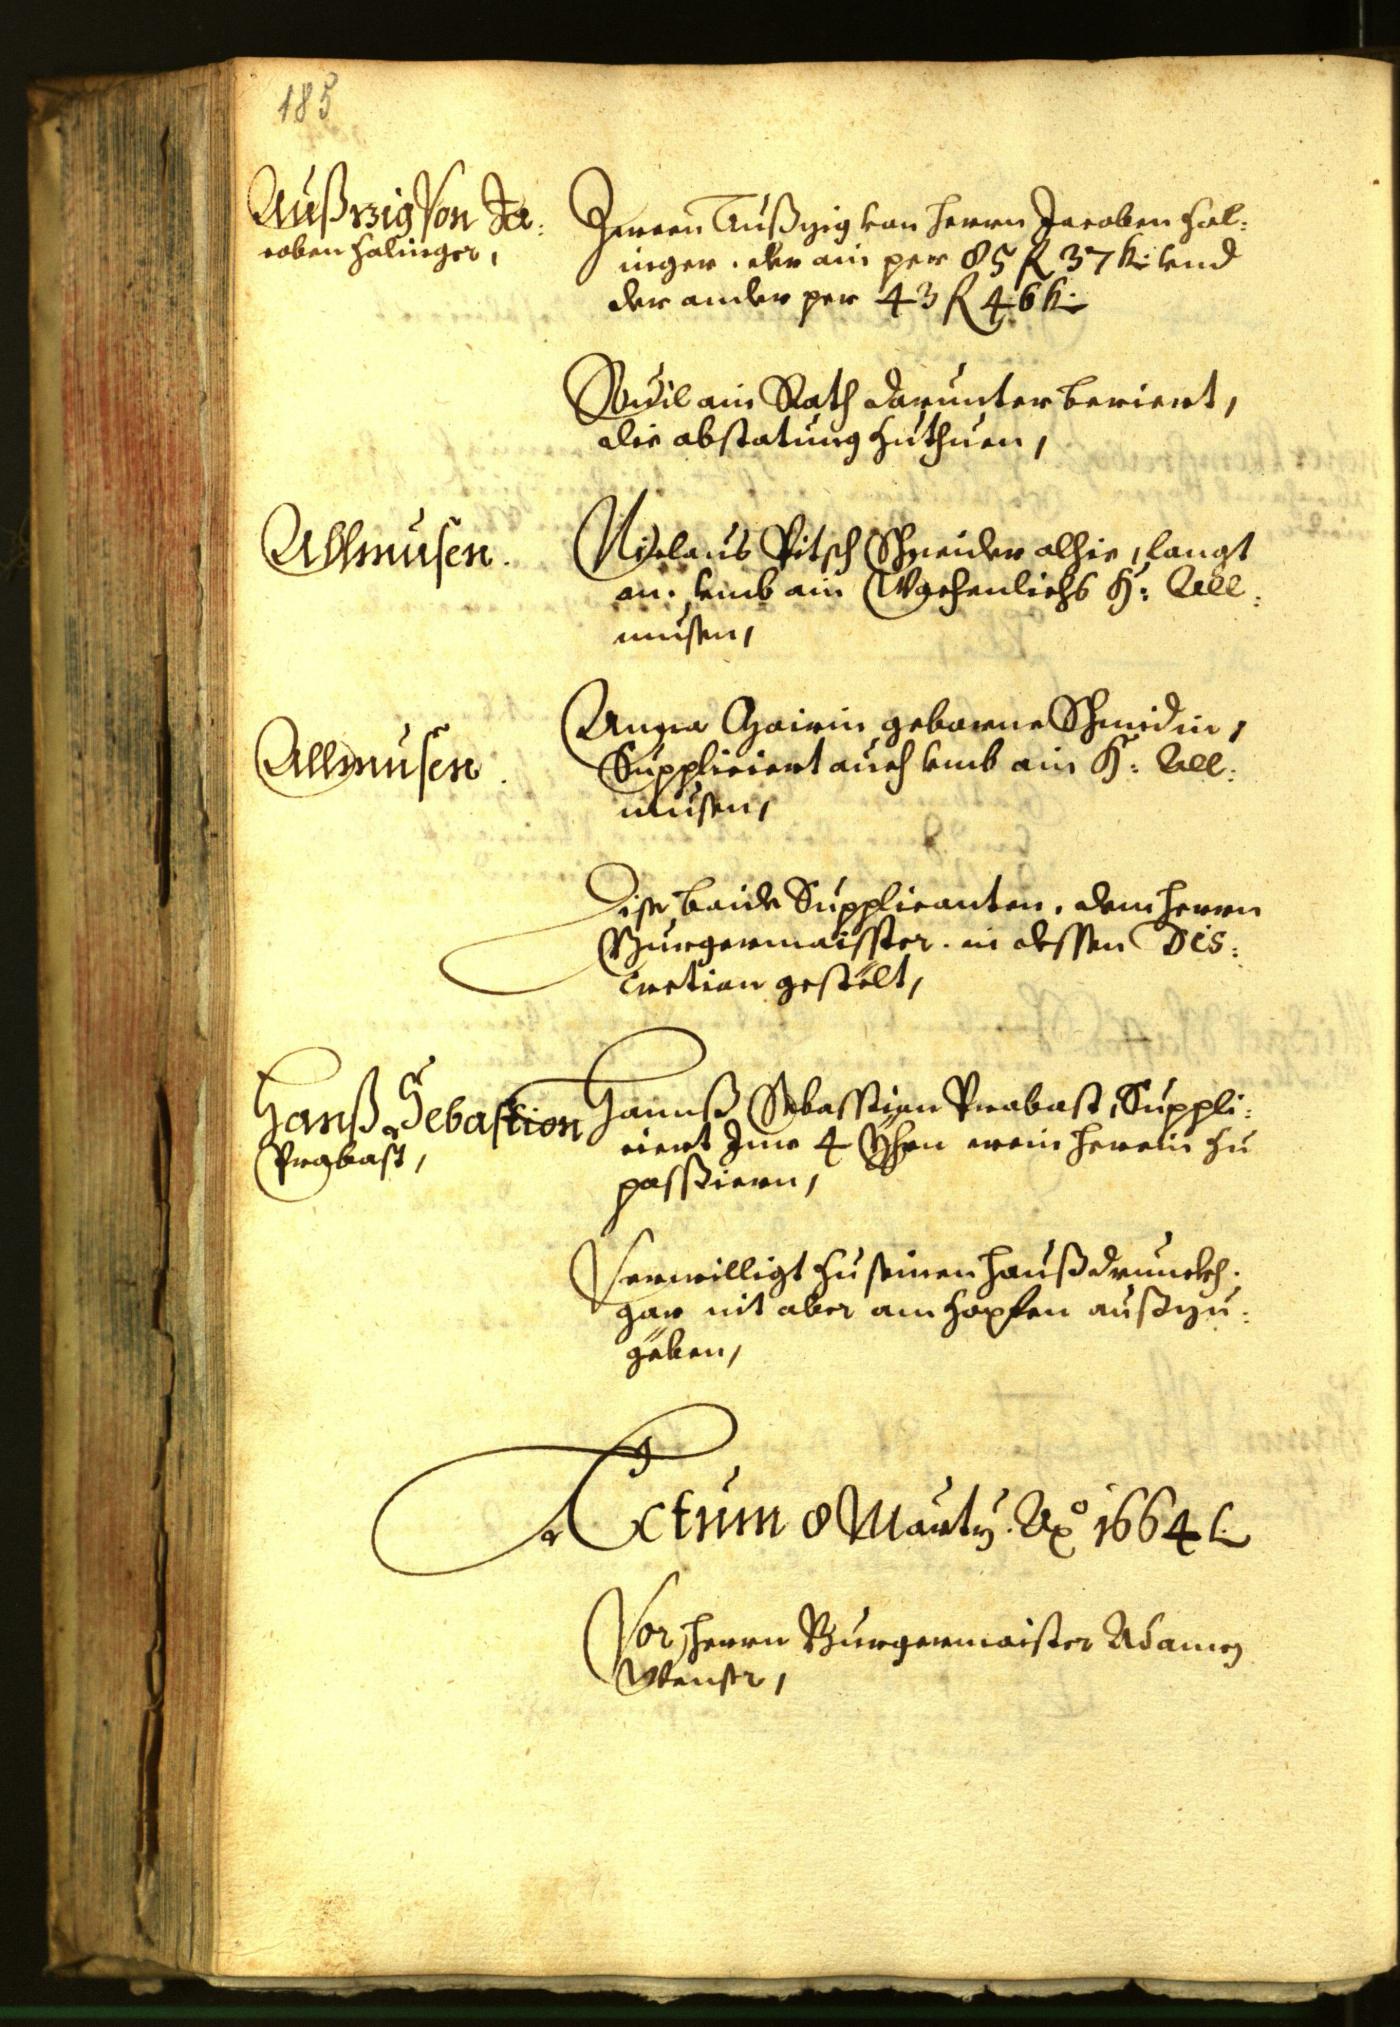 185
Außzig Von Ja:
coben Halinger,
Zween Außzig von herrn Jacoben Hal:
inger. der ain per 85 f 37 k: vnd
der ander per 43 f 46 k:
Weil ain Rath darunter beriert,
die abstatung zuthuen,
Allmusen.
Niclaus Pitsch Schneider alhie, langt
an. vmb ain Wochenlichs H: All:
musen,
Allmusen.
Anna Mairin geborne Schmidin,
Suppliciert auch vmb ain H: All:
musen,
Dise baide Supplicanten. dem herrn
Burgermaisster. in dessen Dis:
cretion gestelt,
Hanß Sebastion
Probast,
Hannß Sebasstian Probast, Suppli:
ciert Jme 4 Yhrn wein herein zu
passiern,
Verwilligt zu seinen haußdrunckh.
gar nit aber am Zapfen außzu:
geben,
Actum 8 Martÿ. Aō 1664
Vor herrn Burgermaister Adamen
Wenser,